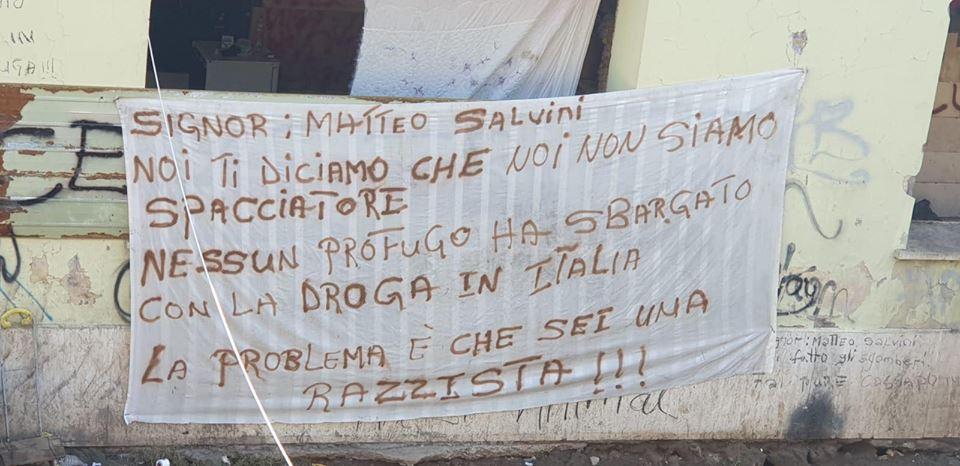 IN
SIGNOR: MATTEO SALVINI
NOI TI DICIAMO CHE NOI NON SIAMO
SPACCIATORE
NESSUN PROFUGO HA SBARGATO
CON LA DROGA IN ITALIA
LA PROBLEMA È CHE SEI UNA
RAZZISTA!!!
CE
gnor: Matteo Salvini
fatto gli sgomberi
PURE